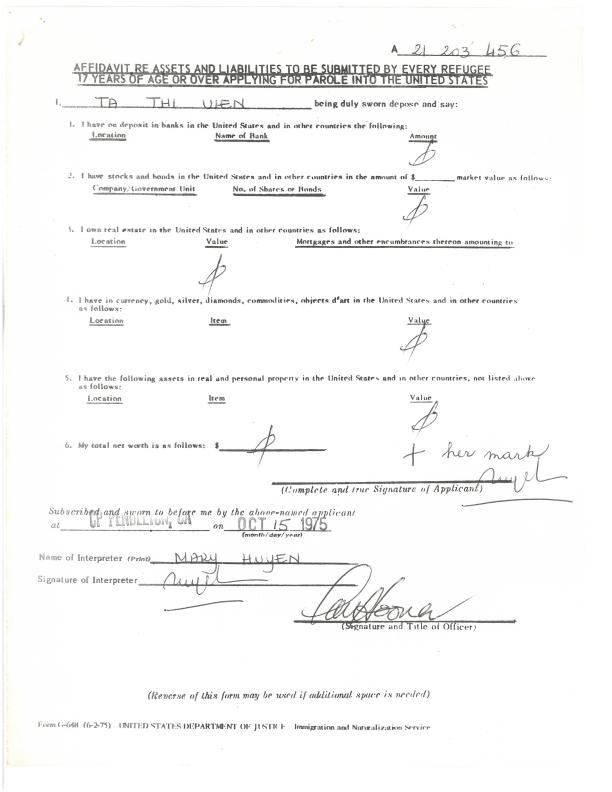 A 21 203 456
AFFIDAVIT RE ASSETS AND LIABILITIES TO BE SUBMITTED BY EVERY REFUGEE
17 YEARS OF AGE OR OVER APPLYING FOR PAROLE INTO THE UNITED STATES
I, TA THI VIEN being duly sworn depose and say:
1. I have on deposit in banks in the United States and in other countries the following:
Location Name of Bank Amount
∅
2. I have stocks and bonds in the United States and in other countries in the amount of $ market value as follows:
Company/Government Unit No. of Shares or Bonds Value
∅
3. I own real estate in the United States and in other countries as follows:
Location Value Mortgages and other encumbrances thereon amounting to
∅
4. I have in currency, gold, silver, diamonds, commodities, objects d'art in the United States and in other countries
as follows:
Location Item Value
∅
5. I have the following assets in real and personal property in the United States and in other countries, not listed above
as follows:
Location Item Value
∅
6. My total net worth is as follows: $ ∅
+ her mark
(Complete and true Signature of Applicant)
Subscribed and sworn to before me by the above-named applicant
at CP PENDLETON, CA on OCT 15 1975
(month/day/year)
Name of Interpreter (Print) MARY HUYEN
Signature of Interpreter
(Signature and Title of Officer)
(Reverse of this form may be used if additional space is needed)
Form G-648 (6-2-75) UNITED STATES DEPARTMENT OF JUSTICE Immigration and Naturalization Service